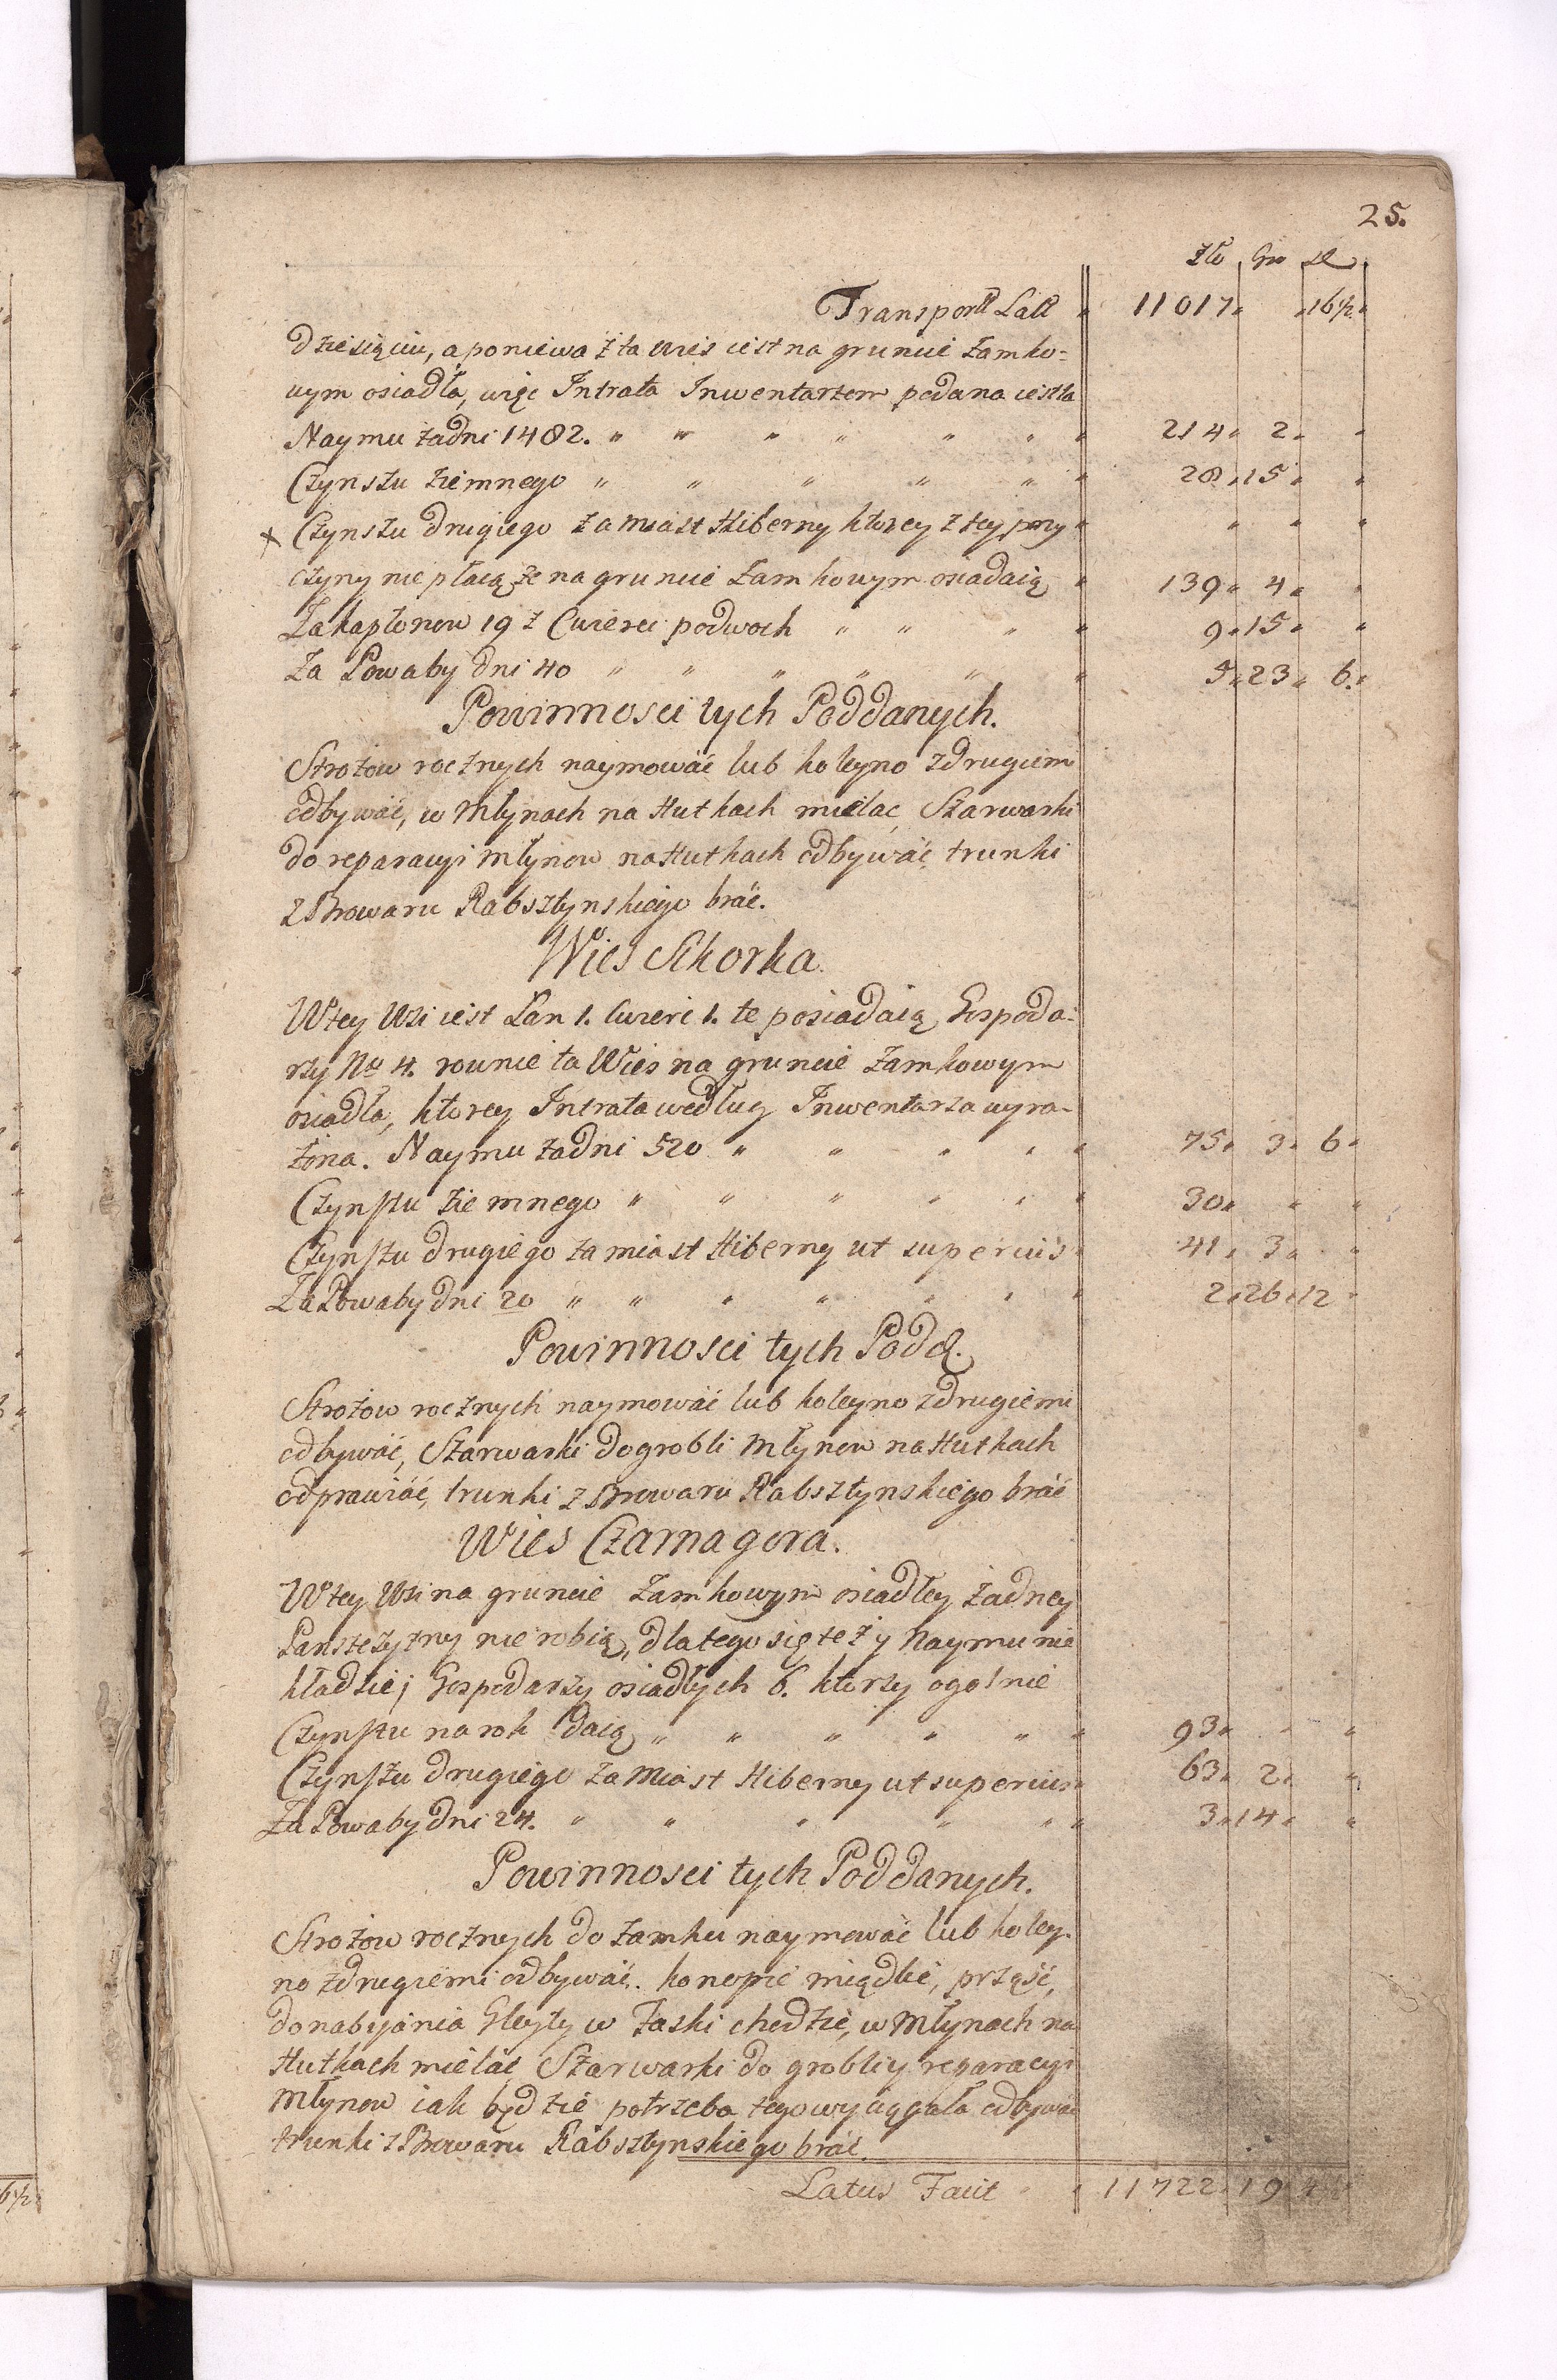 25.
Zło Gro d
Transport Lall 11017 " 16½
Dziesięciu, a poniewaz ta wies iest na gruncie Zamko=
wym osiadła, więc Intrata Inwentarzem podana iest ta
Naymu zadni 1482. " " " " " " " 214 " 2 " "
Czynszu ziemnego " " " " " " 28 " 15 " "
x Czynszu drugiego zamiast Hiberny ktorey z tey przy " " " "
czyny nie płacą ze na gruncie Zamkowym osiadaią " 139 " 4 " "
Za kapłonow 19 z Cwierci podwoch " " " " 9 " 15 " "
Za Powaby dni 40 " " " " " " 5 " 23 " 6 "
Powinnosci tych Poddanych.
Strozow rocznych naymować lub koleyno zdrugiemi
odbywać, w Młynach na Hutkach mielac Szarwarki
do reparacyi młynow na Hutkach odbywać trunki
z Browaru Rabsztynskiego brać.
Wies Sikorka.
Wtey Wsi iest Łan 1. Cwierc 1. te posiadaią Gospoda=
rzy No 4. rownie ta Wies na gruncie Zamkowym
osiadła, ktorey Intrata według Inwentarza wyra=
żona. Naymu zadni 520 " " " " " 75 " 3 " 6 "
Czynszu ziemnego " " " " " " 30 " " "
Czynszu drugiego zamiast Hiberny ut superius " 41 " 3 " "
Za Powaby dni 20 " " " " " " " 2 " 26 " 12 "
Powinnosci tych Podd.
Strozow rocznych naymować lub koleyno zdrugiemi
odbywać, Szarwarki do grobli Młynow na Hutkach
odprawiać, trunki z Browaru Rabsztynskiego brać
Wies Czarnagora.
Wtey Wsi na gruncie Zamkowym osiadłey żadney
Panszczyzny nie robią, dlatego się też y Naymu nie
kładzie; Gospodarzy osiadłych 6. ktorzy ogolnie
Czynszu na rok daią " " " " " " 93 " " "
Czynszu drugiego zamiast Hiberny ut superius " 63 " 2 " "
Za Powaby dni 24. " " " " " " 3 " 14 " "
Powinnosci tych Poddanych.
Strozow rocznych do Zamku naymować lub koley=
no zdrugiemi odbywać. konopie miądlić, prząść,
do nabijania Gleyty w Faski chodzić, w Młynach na
Hutkach mielać Szarwarki do grobli y reparacyi
Młynow iak będzie potrzeba tego wyciągała odbywać
trunki z Browaru Rabsztynskiego brać.
Latus Facit " 11722 " 19 " 4